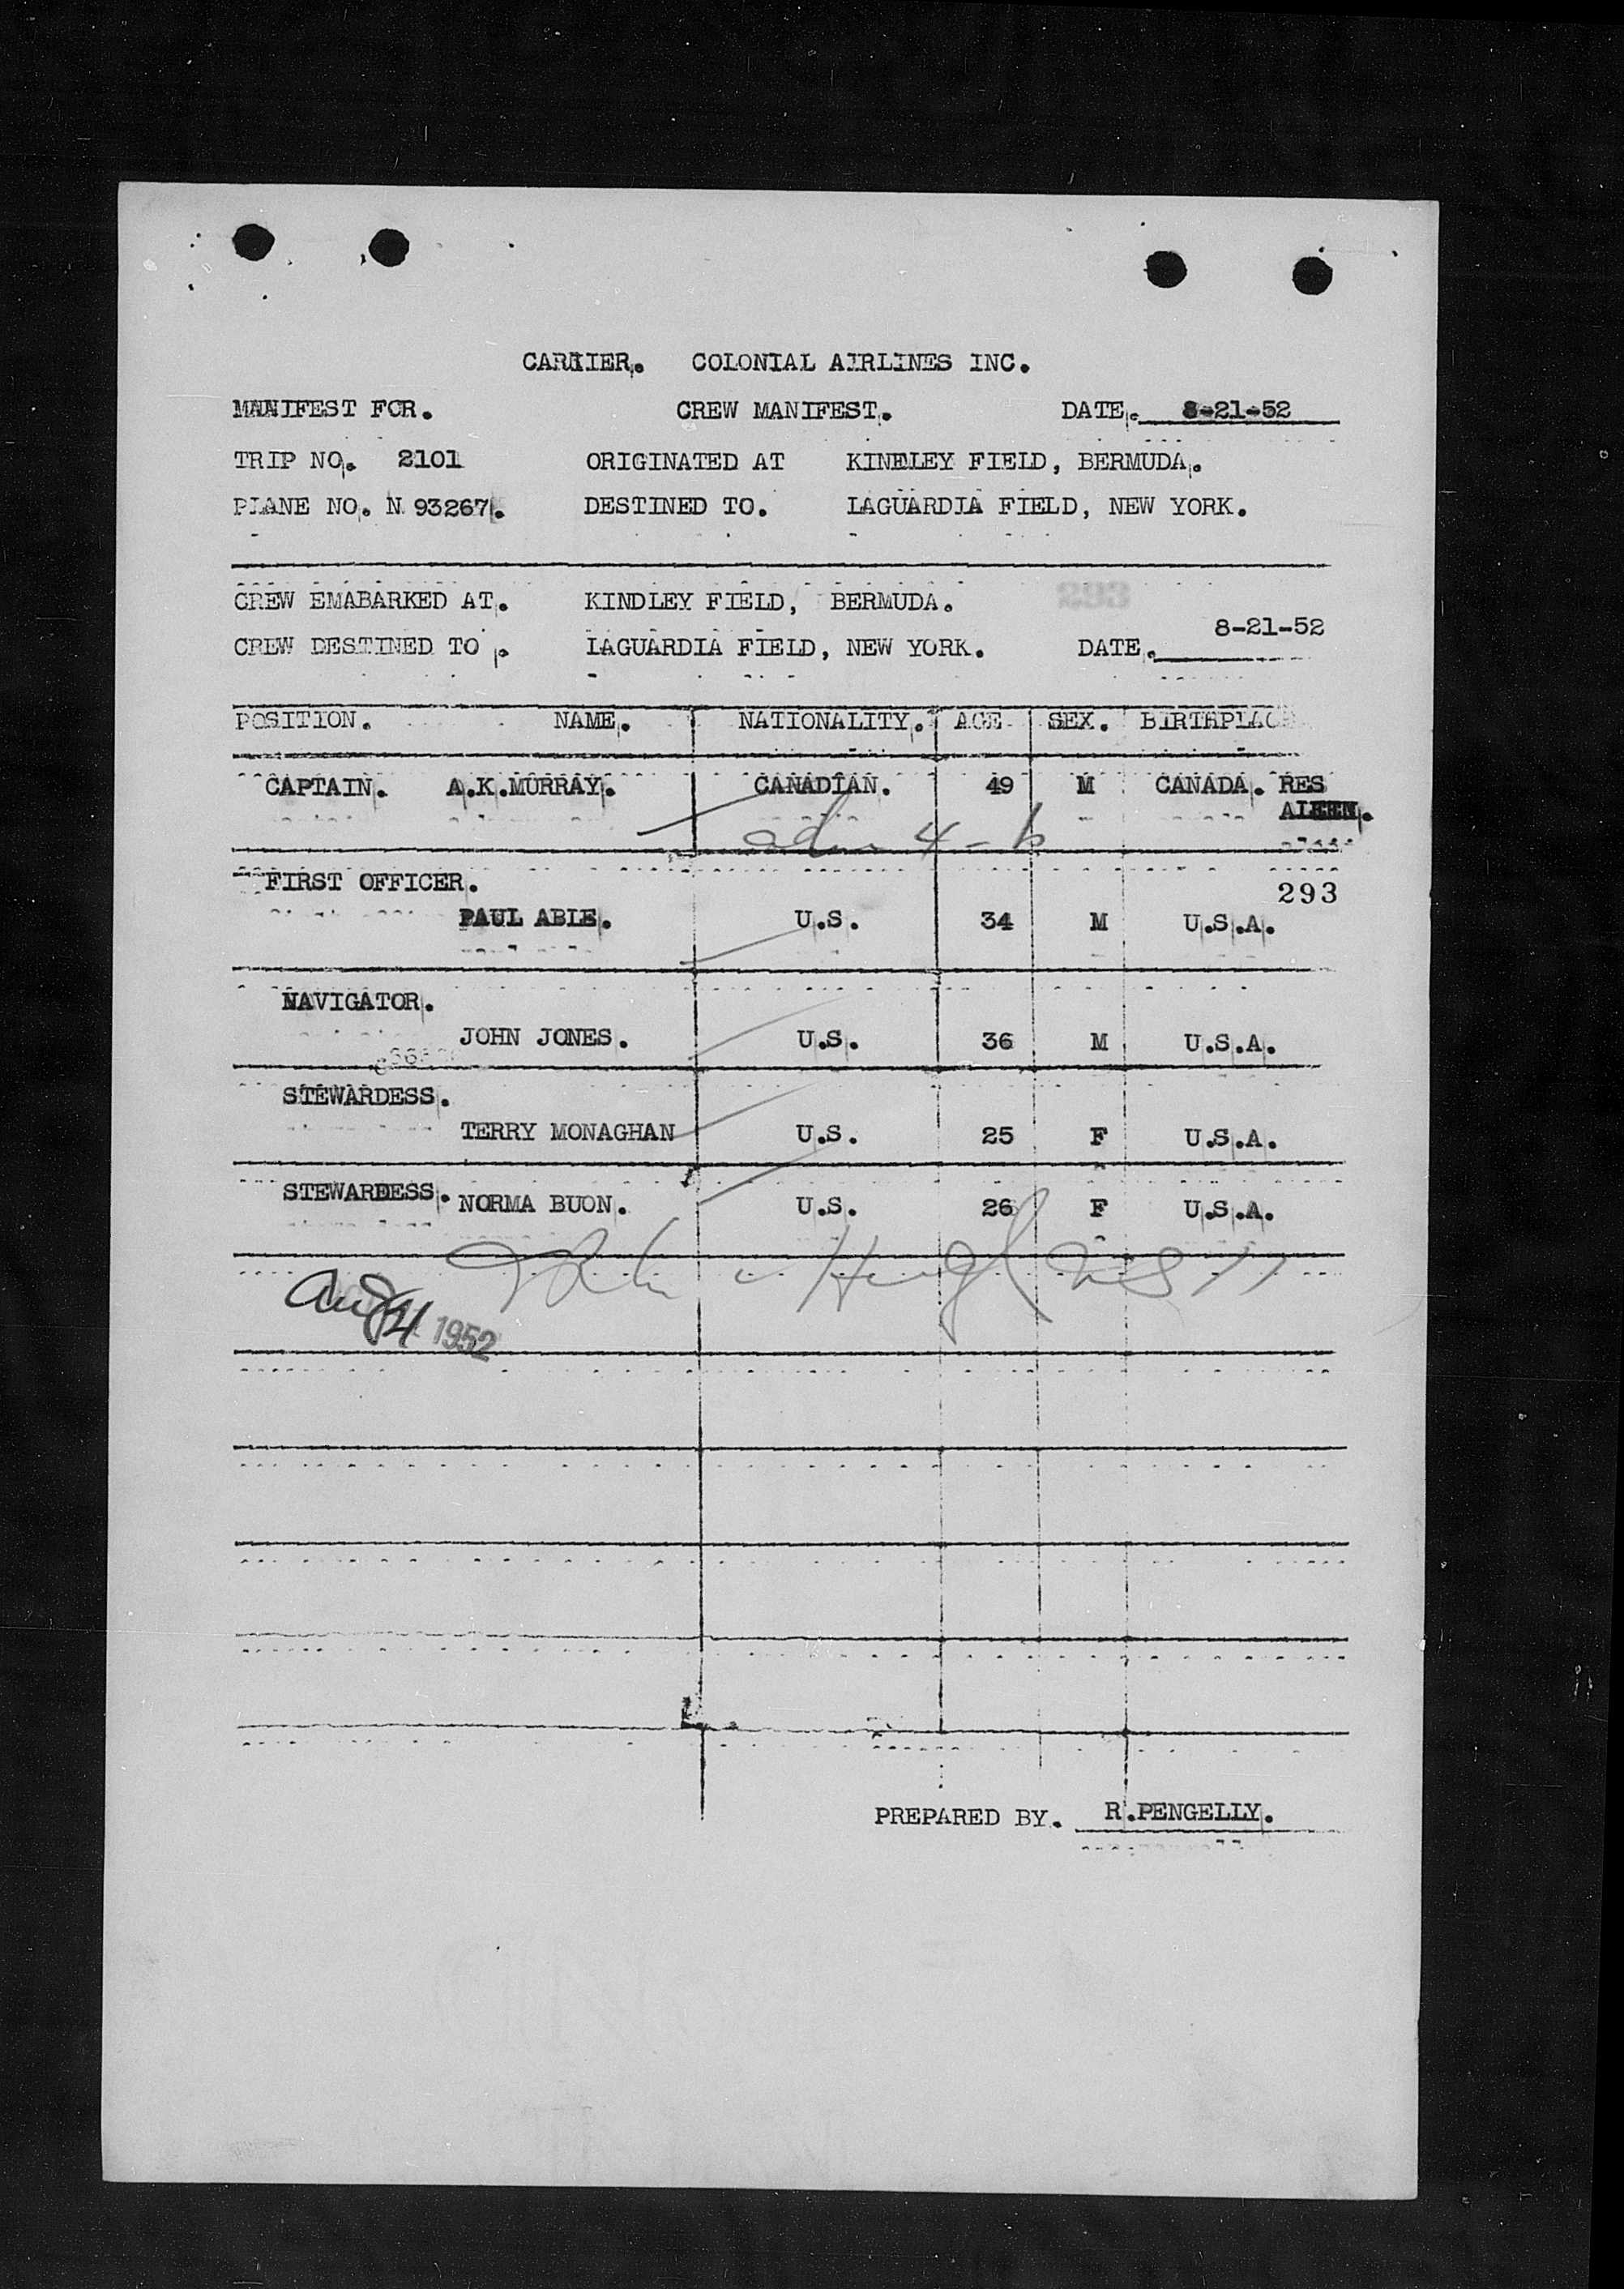 CARRIER. COLONIAL AIRLINES INC.
MANIFEST FOR. CREW MANIFEST. DATE. 8-21-52
TRIP NO. 2101 ORIGINATED AT KINDLEY FIELD, BERMUDA.
PLANE NO. N 93267. DESTINED TO. LAGUARDIA FIELD, NEW YORK.
CREW EMABARKED AT. KINDLEY FIELD, BERMUDA. 293
CREW DESTINED TO. LAGUARDIA FIELD, NEW YORK. DATE. 8-21-52
POSITION. NAME. NATIONALITY. AGE SEX. BIRTHPLACE
CAPTAIN. A.K.MURRAY. CANADIAN. 49 M CANADA. RES
ALIEN.
adm 4-b
FIRST OFFICER. 293
PAUL ABLE. U.S. 34 M U.S.A.
NAVIGATOR.
JOHN JONES. U.S. 36 M U.S.A.
STEWARDESS.
TERRY MONAGHAN U.S. 25 F U.S.A.
STEWARDESS. NORMA BUON. U.S. 26 F U.S.A.
Aug 1952
PREPARED BY. R.PENGELLY.